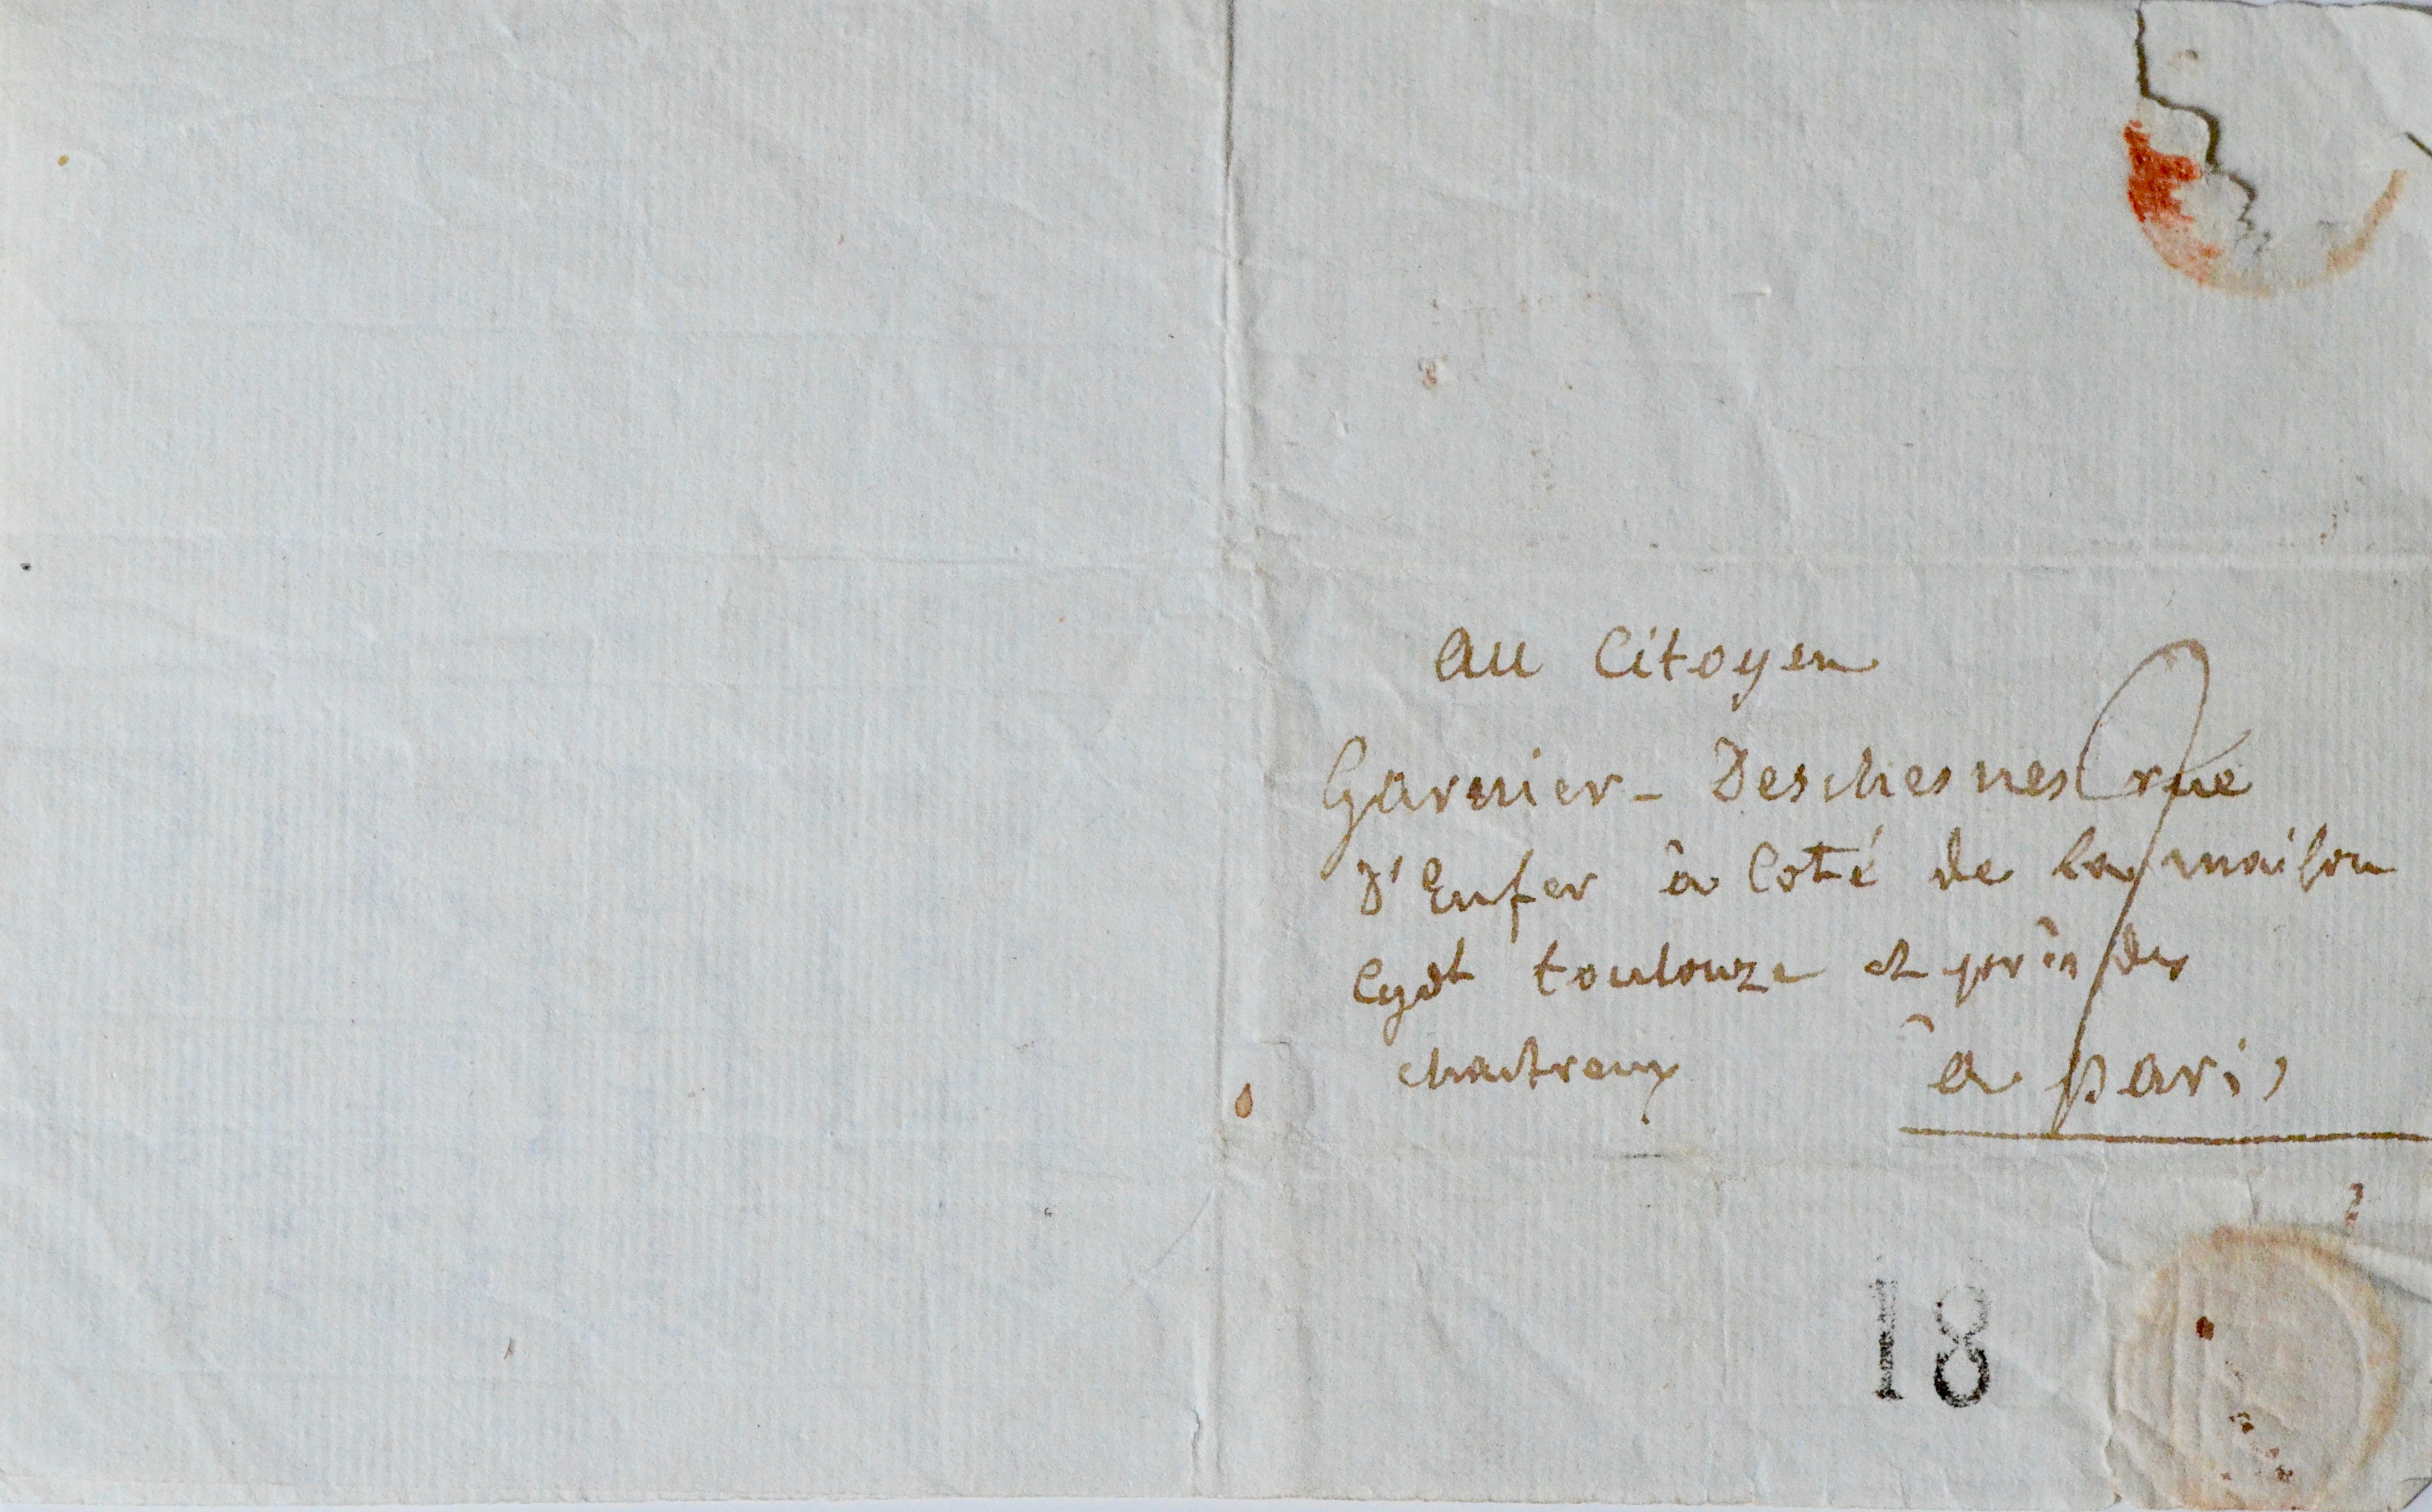 au Citoyen
Garnier - Deschesnes rue
d'Enfer à Coté de la maison
Cydt toulouze et près des
chartreux à paris
18